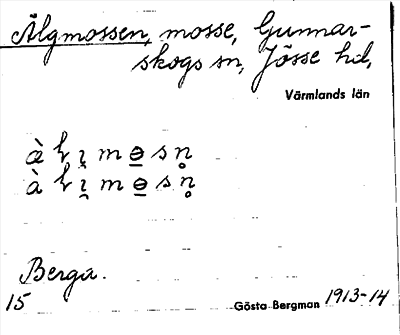 Älgmossen, mosse, Gunnar-
skogs sn, Jösse hd,
Värmlands län
Berga.
15 Gösta Bergman 1913-14